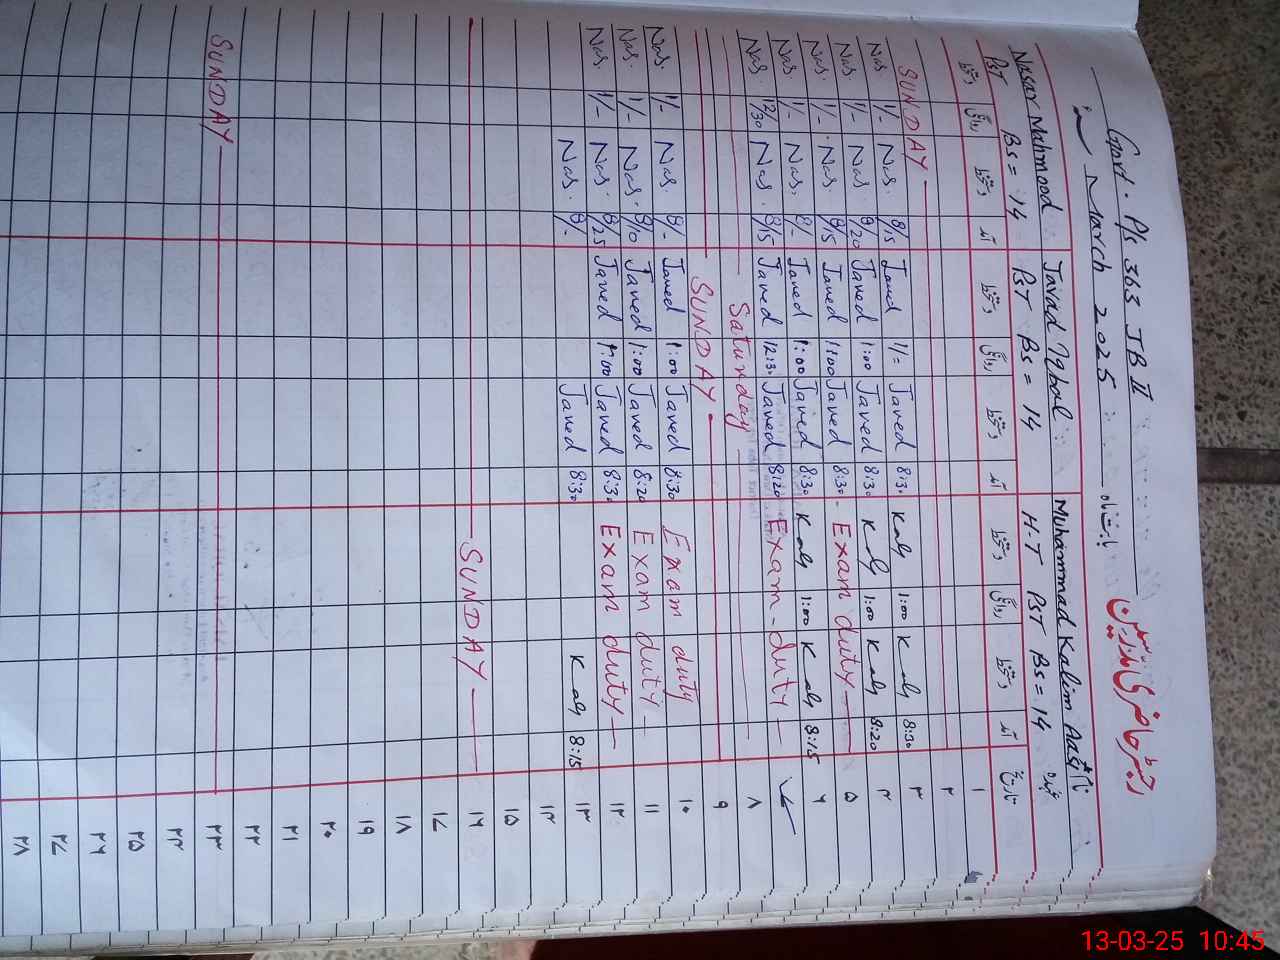 رجسٹر حاضری مدرسین
Govt. P/s 363 JB II
March 2025 بابت ماہ
Nasar Mahmood Javad Iqbal Muhammad Kalim نام
PST Bs = 14 PST Bs = 14 H.T PST Bs = 14 عہدہ
دستخط روانگی دستخط آمد دستخط روانگی دستخط آمد دستخط روانگی دستخط آمد تاریخ
۱
SUNDAY ۲
Nas 1/- Nas. 8/15 Javed 1/= Javed 8:30 Kaly 1:00 Kaly 8:30 ۳
Nas 1/- Nas 8/20 Javed 1:00 Javed 8:30 Kaly 1:00 Kaly 8:20 ۴
Nas. 1/- Nas. 8/15 Javed 1:00 Javed 8:30 Exam duty ۵
Nas 1/- Nas. 8/- Javed 1:00 Javed 8:30 Kaly 1:00 Kaly 8:15 ۶
Nas. 12/30 Nas. 8/15 Javed 12:30 Javed 8:20 Exam - duty
Saturday ۸
SUNDAY ۹
Nas. 1/- Nas 8/- Javed 1:00 Javed 8:30 Exam duty ۱۰
Nas. 1/- Nas. 8/10 Javed 1:00 Javed 8:20 Exam duty ۱۱
Nas. 1/- Nas. 8/25 Javed 1:00 Javed 8:30 Exam duty ۱۲
Nas. 8/- Javed 8:30 Kaly 8:15 ۱۳
۱۴
۱۵
SUNDAY ۱۶
۱۷
۱۸
۱۹
۲۰
۲۱
۲۲
SUNDAY ۲۳
۲۴
۲۵
۲۶
۲۷
۲۸
13-03-25 10:45